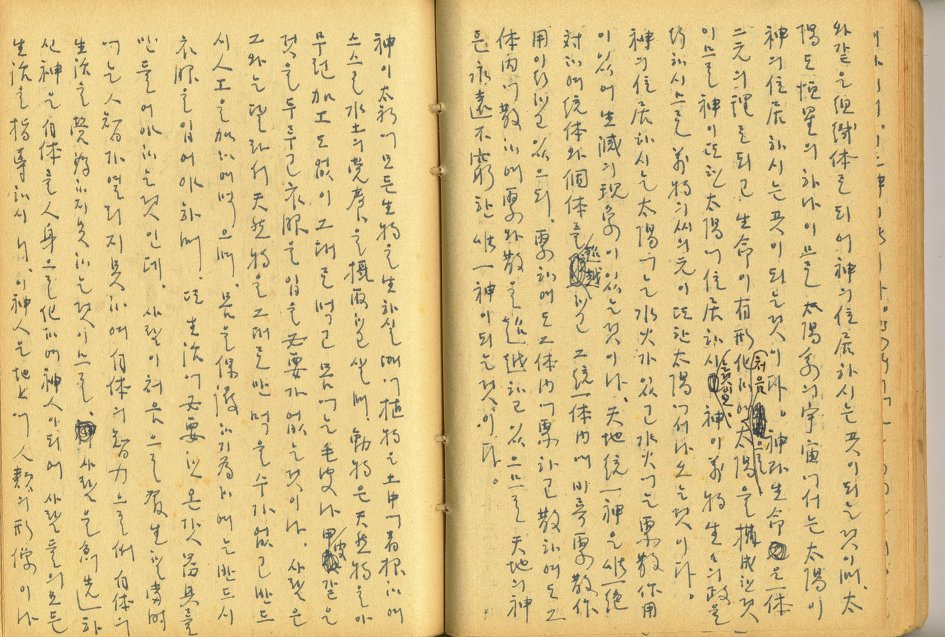 와같은 組織体로 되어 神의 住居하시는 곳이 되는것이며, 太
陽도 恒星의 하나이므로 太陽系의 宇宙에서는 太陽이
神의 住居하시는 곳이 되는것이다。 神과 生命은 一体
二元의 理로 되고 生命이 有形化하여 처음으로 太陽을 構成한것
이므로 神이 또한 太陽에 住居하시는것이오, 神이 萬物生命의 政을
하시므로 萬物의 씨의 元이 또한 太陽에서 나오는것이다。
神의 住居하시는 太陽에는 水火가 있고 水火에는 聚散作用
이 있어 生滅의 現象이 있는것이나, 天地統一神은 唯一絶
対하여 統体와 個体를 超越하고 그 統一体內에 비록 聚散作
用이 있으되, 聚하여도 그 体內에 聚하고 散하여도 그
体內에 散하여 聚와 散을 超越하고 있으므로 天地의 神
은 永遠不窮한 唯一神이 되는것이다。
神이 太初에 모든 生物을 生하실때에 植物은 土中에 着根하여
스스로 水土의 営養을 攝取하고 살며, 動物은 天然物을 아
무런 加工도 없이 그대로 먹고 몸에는 毛皮나 甲皮 같은
것을 두루고 衣服을 입을 必要가 없는것이나, 사람은
그와는 달라서 天然物을 그대로만 먹을 수가 없고 반드
시 人工을 加하여 먹으며, 몸을 保護하기 爲하여는 반드시
衣服을 입어야 하며, 또 生活에 必要한 온갖 器具를
만들어야 하는것인데, 사람이 처음으로 發生한 當時
에는 人智가 열리지 못하여 自体의 智力으로써 自体의
生活을 하지 못하는것이므로, 사람을 創造하
신 神은 自体를 人身으로 化하여 神人이 되어 사람들의 모든
生活을 指導하시니, 이 神人은 地上에 人類의 形像이 나